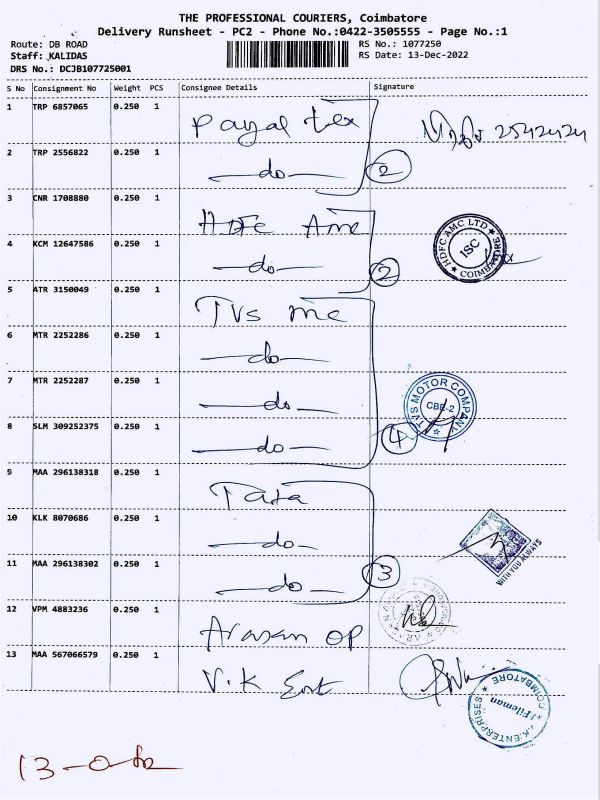 THE PROFESSIONAL COURIERS, Coimbatore
Delivery Runsheet - PC2 - Phone No.:0422-3505555 - Page No.:1
Route: DB ROAD
Staff: KALIDAS
DRS No.: DCJB107725001
RS No.: 1077250
RS Date: 13-Dec-2022
S No Consignment No Weight PCS Consignee Details Signature
1 TRP 6857065 0.250 1 Payal tex 2542424
2 TRP 2556822 0.250 1 -do- 2
3 CNR 1708880 0.250 1 HDFC Amc
HDFC AMC LTD ISC COIMBATORE
4 KCM 12647586 0.250 1 -do- 2
5 ATR 3150049 0.250 1 TVS mc
6 MTR 2252286 0.250 1 -do-
7 MTR 2252287 0.250 1 -do-
TVS MOTOR COMPANY CBE-2
8 SLM 309252375 0.250 1 -do- 4
9 MAA 296138318 0.250 1 Tata
10 KLK 8070686 0.250 1 -do-
WITH YOU ALWAYS
11 MAA 296138302 0.250 1 -do- 3
12 VPM 4883236 0.250 1 Arasan op
13 MAA 567066579 0.250 1 V.K Ent
V.K.ENTERPRISES COIMBATORE
Fileman
13-